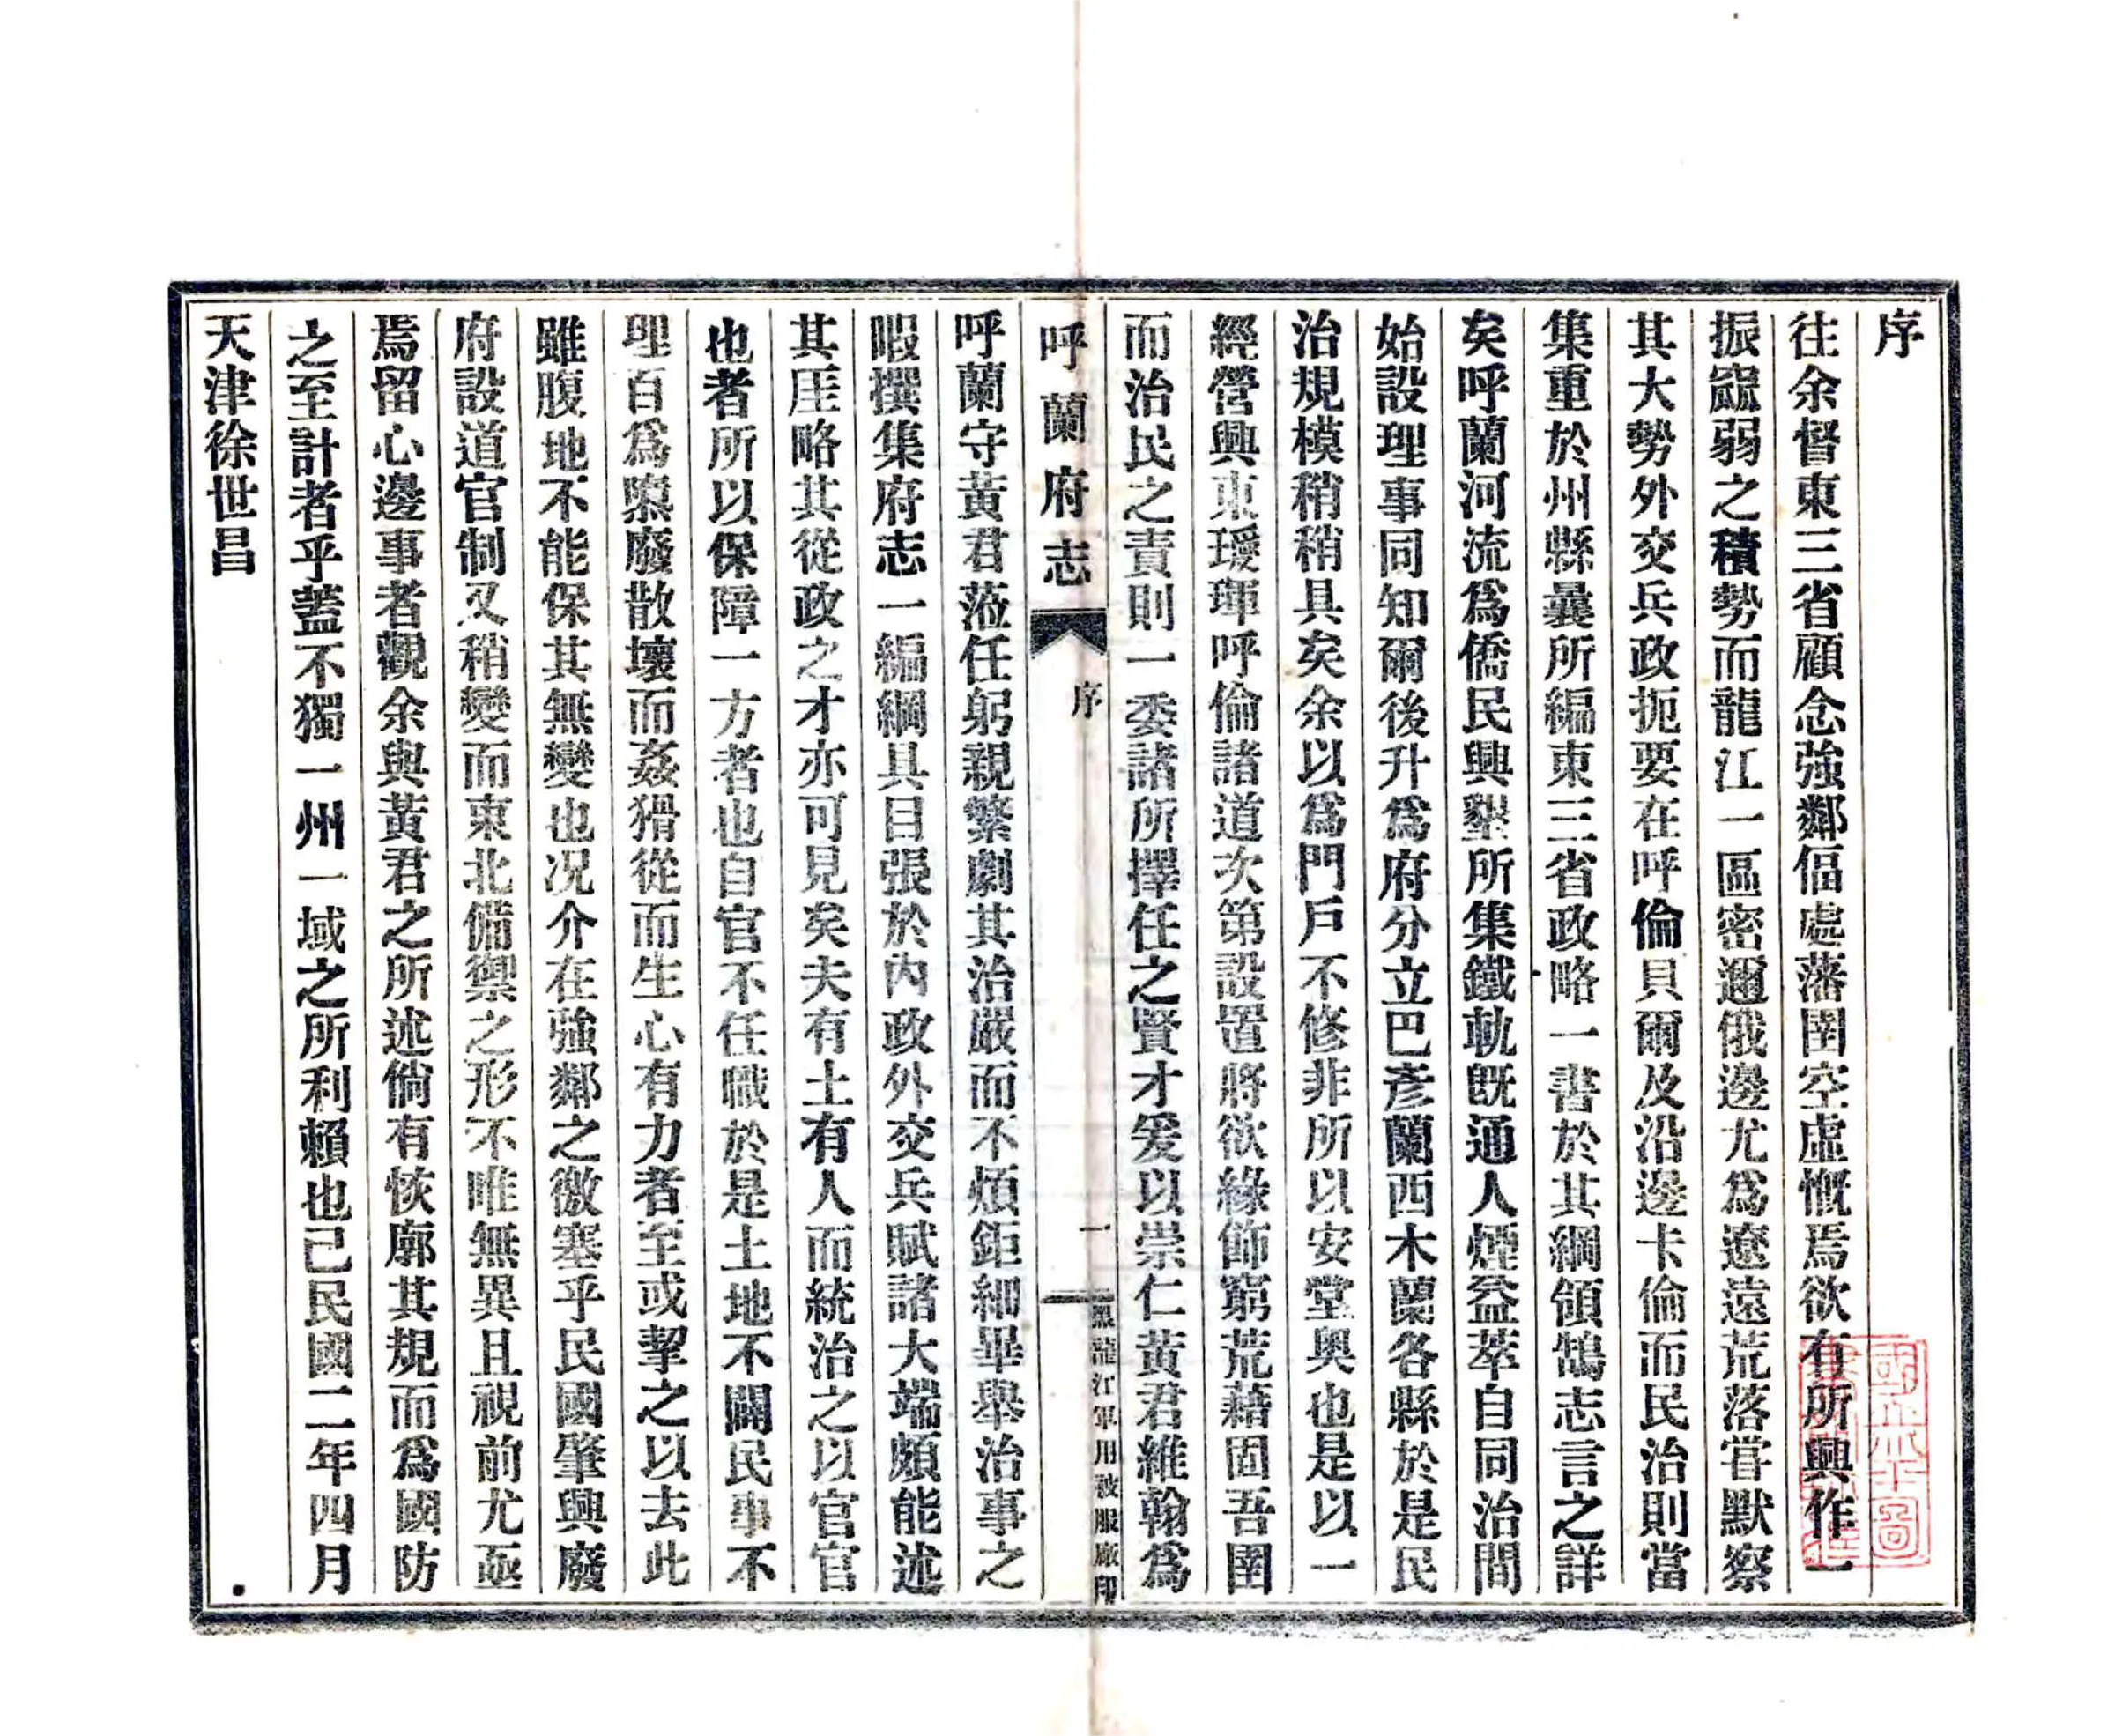 序
往余督東三省顧念強鄰偪處藩圉空虛慨焉欲有所興作一
振窳弱之積勢而龍江一區密邇俄邊尤爲遼遠荒落甞默察
其大勢外交兵政扼要在呼倫貝爾及沿邊卡倫而民治則當
集重於州縣曩所編東三省政略一書於其綱領鵠志言之詳
矣呼蘭河流爲僑民興墾所集鐵軌旣通人煙益萃自同治間
始設理事同知爾後升爲府分立巴彥蘭西木蘭各縣於是民
治規模稍稍具矣余以爲門戶不修非所以安堂奧也是以一
經營興東璦琿呼倫諸道次第設置將欲緣飾窮荒藉固吾圉
而治民之責則一委諸所擇任之賢才爰以崇仁黃君維翰爲
呼蘭府志
序
一
黑龍江軍用被服廠印
呼蘭守黃君蒞任躬親繁劇其治嚴而不煩鉅細畢舉治事之
暇撰集府志一編綱具目張於內政外交兵賦諸大端頗能述
其厓略其從政之才亦可見矣夫有土有人而統治之以官官
也者所以保障一方者也自官不任職於是土地不闢民事不
理百爲隳廢散壞而姦猾從而生心有力者至或挈之以去此
雖腹地不能保其無變也况介在強鄰之徼塞乎民國肇興廢
府設道官制又稍變而東北備禦之形不唯無異且視前尤亟
焉留心邊事者觀余與黃君之所述倘有恢廓其規而爲國防
之至計者乎蓋不獨一州一域之所利賴也已民國二年四月
天津徐世昌